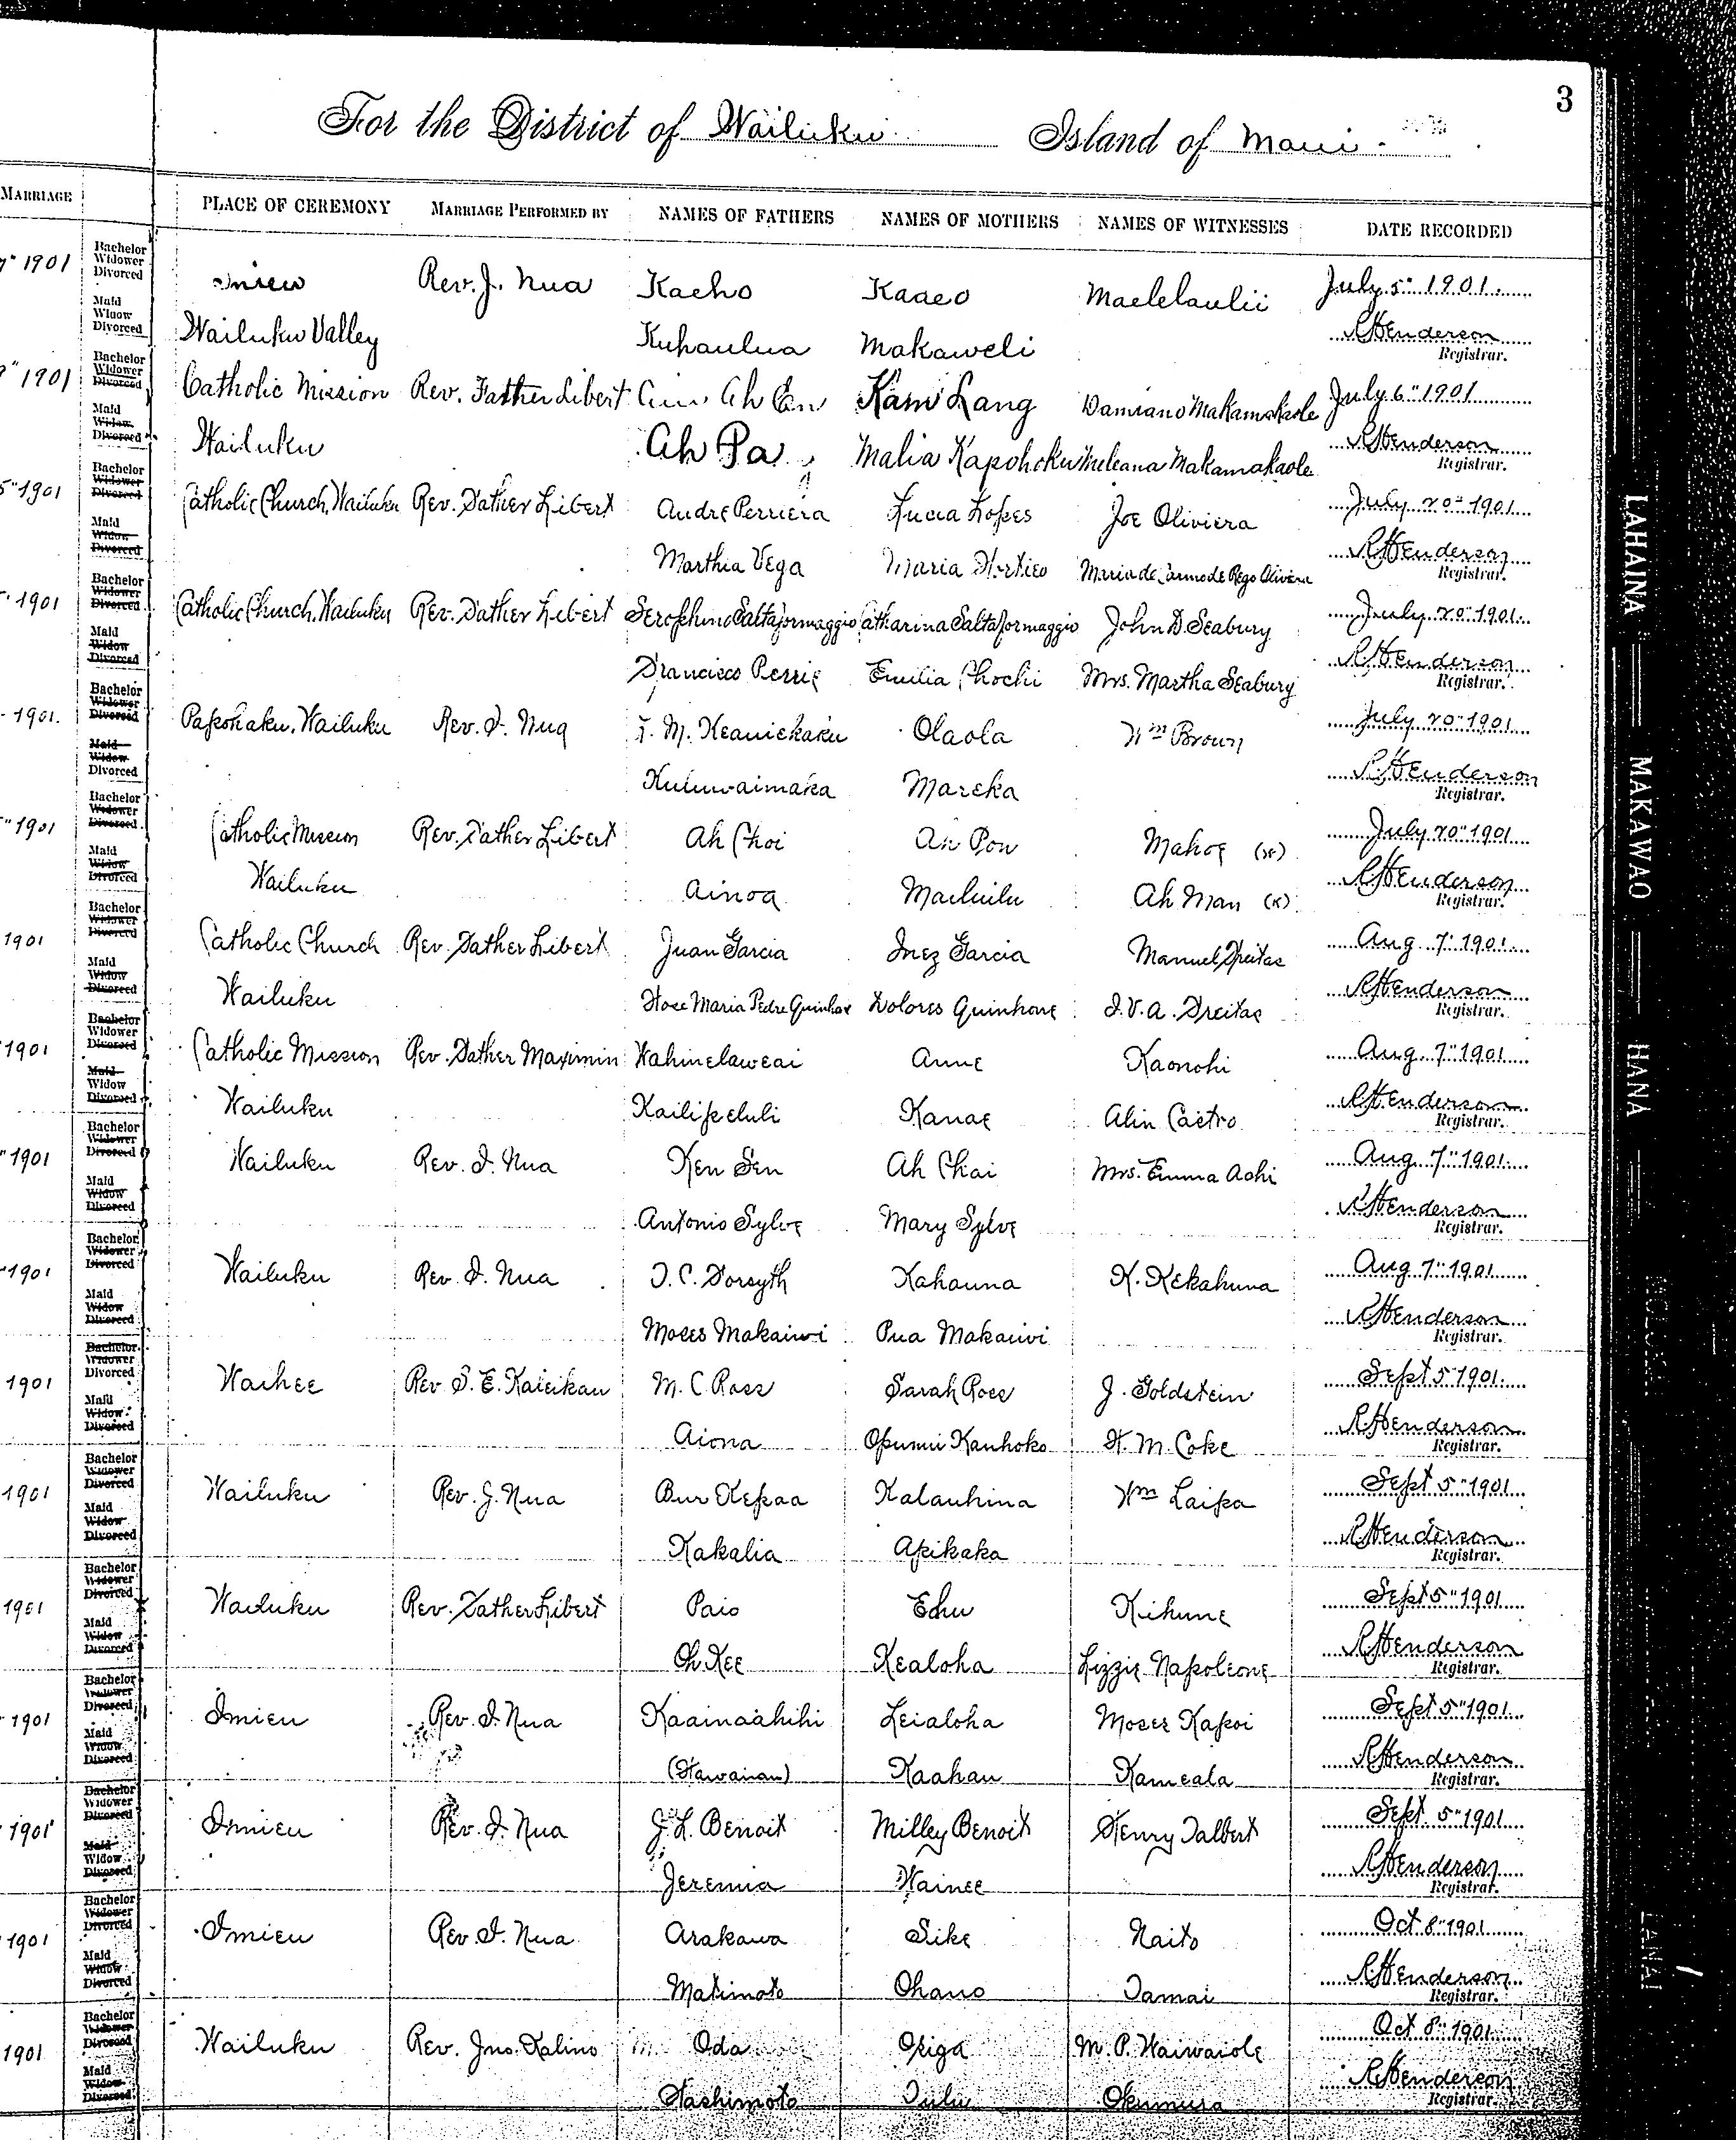 3
For the District of Wailuku Island of Maui.
MARRIAGE PLACE OF CEREMONY MARRIAGE PERFORMED BY NAMES OF FATHERS NAMES OF MOTHERS NAMES OF WITNESSES DATE RECORDED
1901 Bachelor Widower Divorced Rev. J. Nua Kaeho Kaaeo Maelelaulii July 5" 1901.
Maid Widow Divorced Wailuku Valley Kuhaulua Makaweli RHenderson
Registrar.
9" 1901 Bachelor Widower Divorced Catholic Mission Rev. Father Libert Ah En Kam Lang Damiano Makamakaole July 6" 1901
Maid Widow Divorced Wailuku Ah Pa Malia Kapohoku Meleana Makamakaole RHenderson
Registrar.
5" 1901 Bachelor Widower Divorced Catholic Church, Wailuku Rev. Father Libert Andre Perriera Lucia Lopes Joe Oliviera July 20" 1901
Maid Widow Divorced Marthia Vega Maria Maria de Carmo de Rego Olivera RHenderson
Registrar.
1901 Bachelor Widower Divorced Catholic Church, Wailuku Rev. Father Libert Serophino Saltaformaggio Catharina Saltaformaggio John D. Seabury July 20" 1901.
Maid Widow Divorced Francisco Perrie Emilia Chochi Mrs. Martha Seabury RHenderson
Registrar.
1901. Bachelor Widower Divorced Papohaku, Wailuku Rev. I. Nua M. Keaniekaku Olaola Wm Brown July 20" 1901
Maid Widow Divorced Kuluwaimaka Mareka RHenderson
Registrar.
" 1901 Bachelor Widower Divorced Catholic Mission Rev. Father Libert Ah Choi Ah Pow Mahoe (x) July 20" 1901
Maid Widow Divorced Wailuku Ainoa Mailuilu Ah Man (x) RHenderson
Registrar.
1901 Bachelor Widower Divorced Catholic Church Rev. Father Libert Juan Garcia Inez Garcia Manuel Freitas Aug 7" 1901.
Maid Widow Divorced Wailuku Hose Maria Pedre Quinhone Dolores Quinhone J. V. A. Freitas RHenderson
Registrar.
1901 Bachelor Widower Divorced Catholic Mission Rev. Father Maximin Wahinelaweai Anne Kaonohi Aug 7" 1901
Maid Widow Divorced Wailuku Kailipeluli Kanae Alin Castro RHenderson
Registrar.
" 1901 Bachelor Widower Divorced Wailuku Rev. I. Nua Ken Sen Ah Chai Mrs. Emma Achi Aug 7" 1901.
Maid Widow Divorced Antonio Sylve Mary Sylve RHenderson
Registrar.
1901 Bachelor Widower Divorced Wailuku Rev. I. Nua T. C. Forsyth Kahauna K. Kekahuna Aug 7" 1901
Maid Widow Divorced Moses Makaiwi Pua Makaiwi RHenderson
Registrar.
1901 Bachelor Widower Divorced Waihee Rev S. E. Kaieikau M. C. Ross Sarah Ross J. Goldstein Sept 5" 1901.
Maid Widow Divorced Aiona Opunui Kauhoko H. M. Coke RHenderson
Registrar.
1901 Bachelor Widower Divorced Wailuku Rev. J. Nua Bur Kepaa Kalauhina Wm Laipa Sept 5" 1901
Maid Widow Divorced Kakalia Apikaka RHenderson
Registrar.
1901 Bachelor Widower Divorced Wailuku Rev. Father Libert Paio Ehu Kihune Sept 5" 1901
Maid Widow Divorced Oh Kee Kealoha Lizzie Napoleone RHenderson
Registrar.
1901 Bachelor Widower Divorced Imieu Rev. I. Nua Kaainaahihi Leialoha Moses Kapoi Sept 5" 1901
Maid Widow Divorced (Hawaiian) Kaahau Kameala RHenderson
Registrar.
1901 Bachelor Widower Divorced Imieu Rev. I. Nua J. L. Benoit Milley Benoit Henry Talbert Sept. 5" 1901
Maid Widow Divorced Jeremia Wainee RHenderson
Registrar.
1901 Bachelor Widower Divorced Imieu Rev. I. Nua Arakawa Sike Naito Oct 8" 1901
Maid Widow Divorced Matimoto Ohano Tamai RHenderson
Registrar.
1901 Bachelor Widower Divorced Wailuku Rev. Jno. Kalino Oda Okiga M. P. Waiwaiole Oct 8" 1901
Maid Widow Divorced Hashimoto Tulu Okumura RHenderson
Registrar.
LAHAINA
MAKAWAO
HANA
MOLOKAI
LANAI